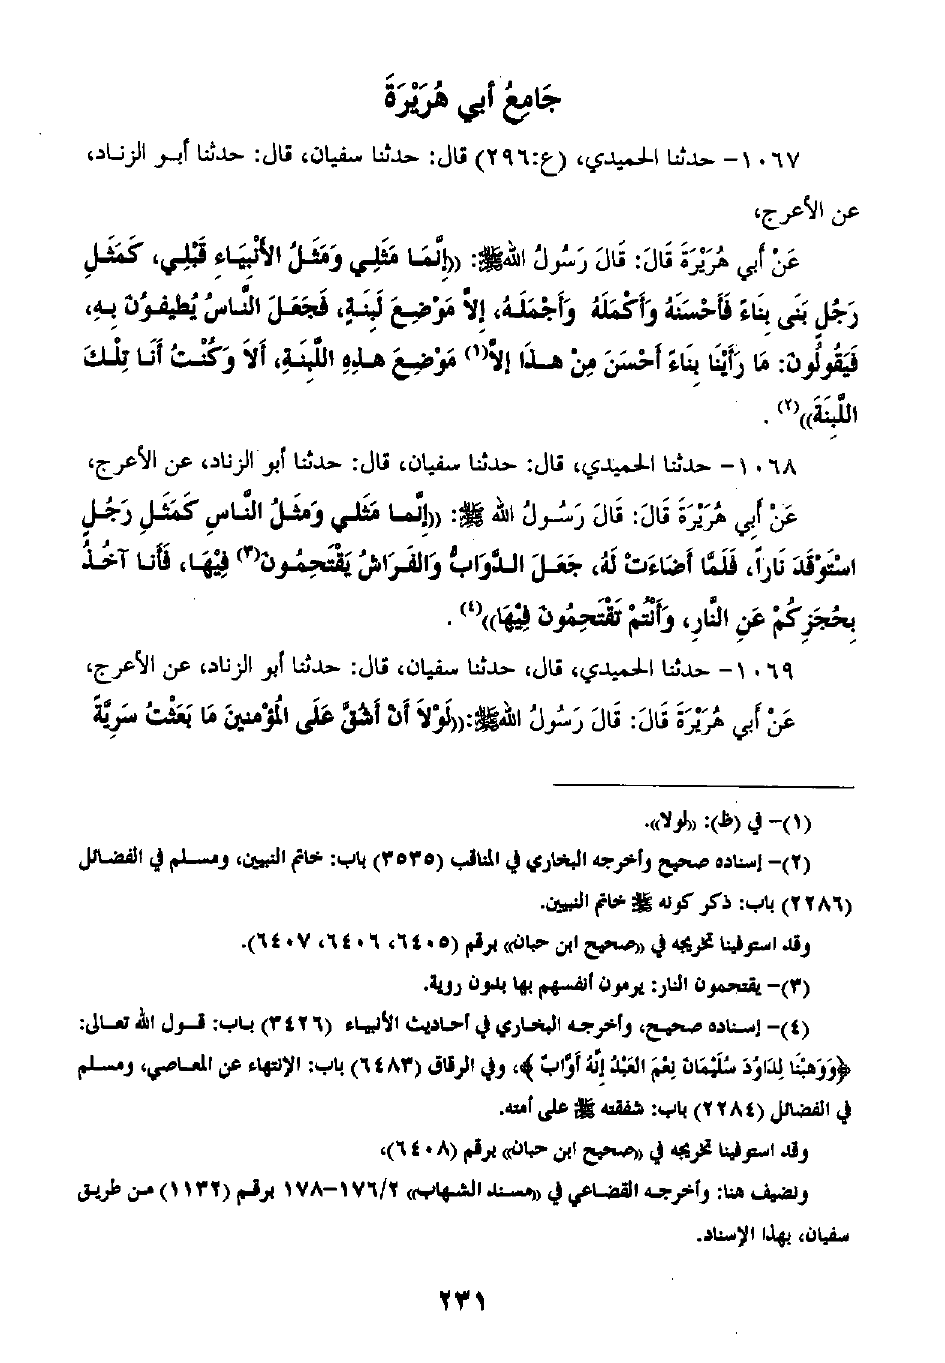 جَامِعُ أبي هُرَيْرَةَ
١٠٦٧- حدثنا الحميدي، (ع:٢٩٦) قال: حدثنا سفيان، قال: حدثنا أبو الزناد،
عن الأعرج،
عَنْ أَبِي هُرَيْرَةَ قَالَ: قَالَ رَسُولُ اللهﷺ: ((إِنَّمَا مَثَلِي وَمَثَلُ الأَنْبِيَاءِ قَبْلِي، كَمَثَلِ
رَجُلٍ بَنَى بِنَاءً فَأَحْسَنَهُ وَأَكْمَلَهُ وَأَجْمَلَهُ، إِلاَّ مَوْضِعَ لَبِنَةٍ، فَجَعَلَ النَّاسُ يُطِيفُونَ بِهِ،
فَيَقُولُونَ: مَا رَأَيْنَا بِنَاءً أَحْسَنَ مِنْ هَذَا إِلاَّ(١) مَوْضِعَ هَذِهِ اللَّبِنَةِ، أَلاَ وَكُنْتُ أَنَا تِلْكَ
اللَّبِنَةَ))(٢) .
١٠٦٨- حدثنا الحميدي، قال: حدثنا سفيان، قال: حدثنا أبو الزناد، عن الأعرج،
عَنْ أَبِي هُرَيْرَةَ قَالَ: قَالَ رَسُولُ الله ﷺ: ((إِنَّمَا مَثَلِي وَمَثَلُ النَّاسِ كَمَثَلِ رَجُلٍ
اسْتَوْقَدَ نَاراً، فَلَمَّا أَضَاءَتْ لَهُ، جَعَلَ الدَّوَابُّ وَالْفَرَاشُ يَقْتَحِمُونَ(٣) فِيْهَا، فَأَنَا آخُذُ
بِحُجَزِكُمْ عَنِ النَّارِ، وَأَنْتُمْ تَقْتَحِمُونَ فِيْهَا))(٤) .
١٠٦٩- حدثنا الحميدي، قال، حدثنا سفيان، قال: حدثنا أبو الزناد، عن الأعرج،
عَنْ أَبِي هُرَيْرَةَ قَالَ: قَالَ رَسُولُ اللهﷺ:((لَوْلاَ أَنْ أَشُقَّ عَلَى الْمُؤْمِنينَ مَا بَعَثْتُ سَرِيَّةً
(١)- في (ظ): ((لولا)).
(٢)- إسناده صحيح وأخرجه البخاري في المناقب (٣٥٣٥) باب: خاتم النبيين، ومسلم في الفضائل
(٢٢٨٦) باب: ذكر كونه ﷺ خاتم النبيين.
وقد استوفينا تخريجه في ((صحيح ابن حبان)) برقم (٦٤٠٥، ٦٤٠٦، ٦٤٠٧).
(٣)- يقتحمون النار: يرمون أنفسهم بها بدون روية.
(٤)- إسناده صحيح، وأخرجه البخاري في أحاديث الأنبياء (٣٤٢٦) باب: قول الله تعالى:
﴿وَوَهَبْنَا لِدَاوُدَ سُلَيْمَانَ نِعْمَ العَبْدُ إِنَّهُ أَوَّابٌ﴾، وفي الرقاق (٦٤٨٣) باب: الإنتهاء عن المعاصي، ومسلم
في الفضائل (٢٢٨٤) باب: شفقته ﷺ على أمته.
وقد استوفينا تخريجه في ((صحيح ابن حبان)) برقم (٦٤٠٨)،
ونضيف هنا: وأخرجه القضاعي في ((مسند الشهاب)) ١٧٦/٢-١٧٨ برقم (١١٣٢) من طريق
سفيان، بهذا الإسناد.
٢٣١